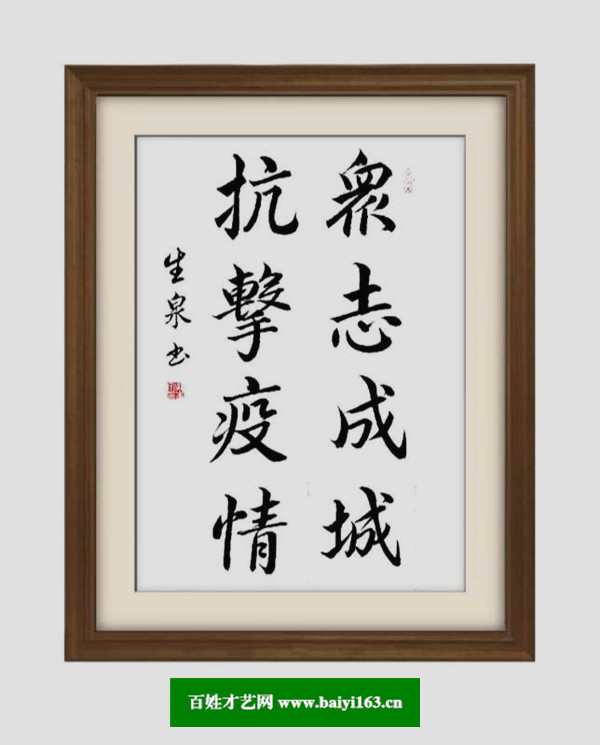 眾志成城
抗擊疫情
生泉书
百姓才艺网 www.baiyi163.cn